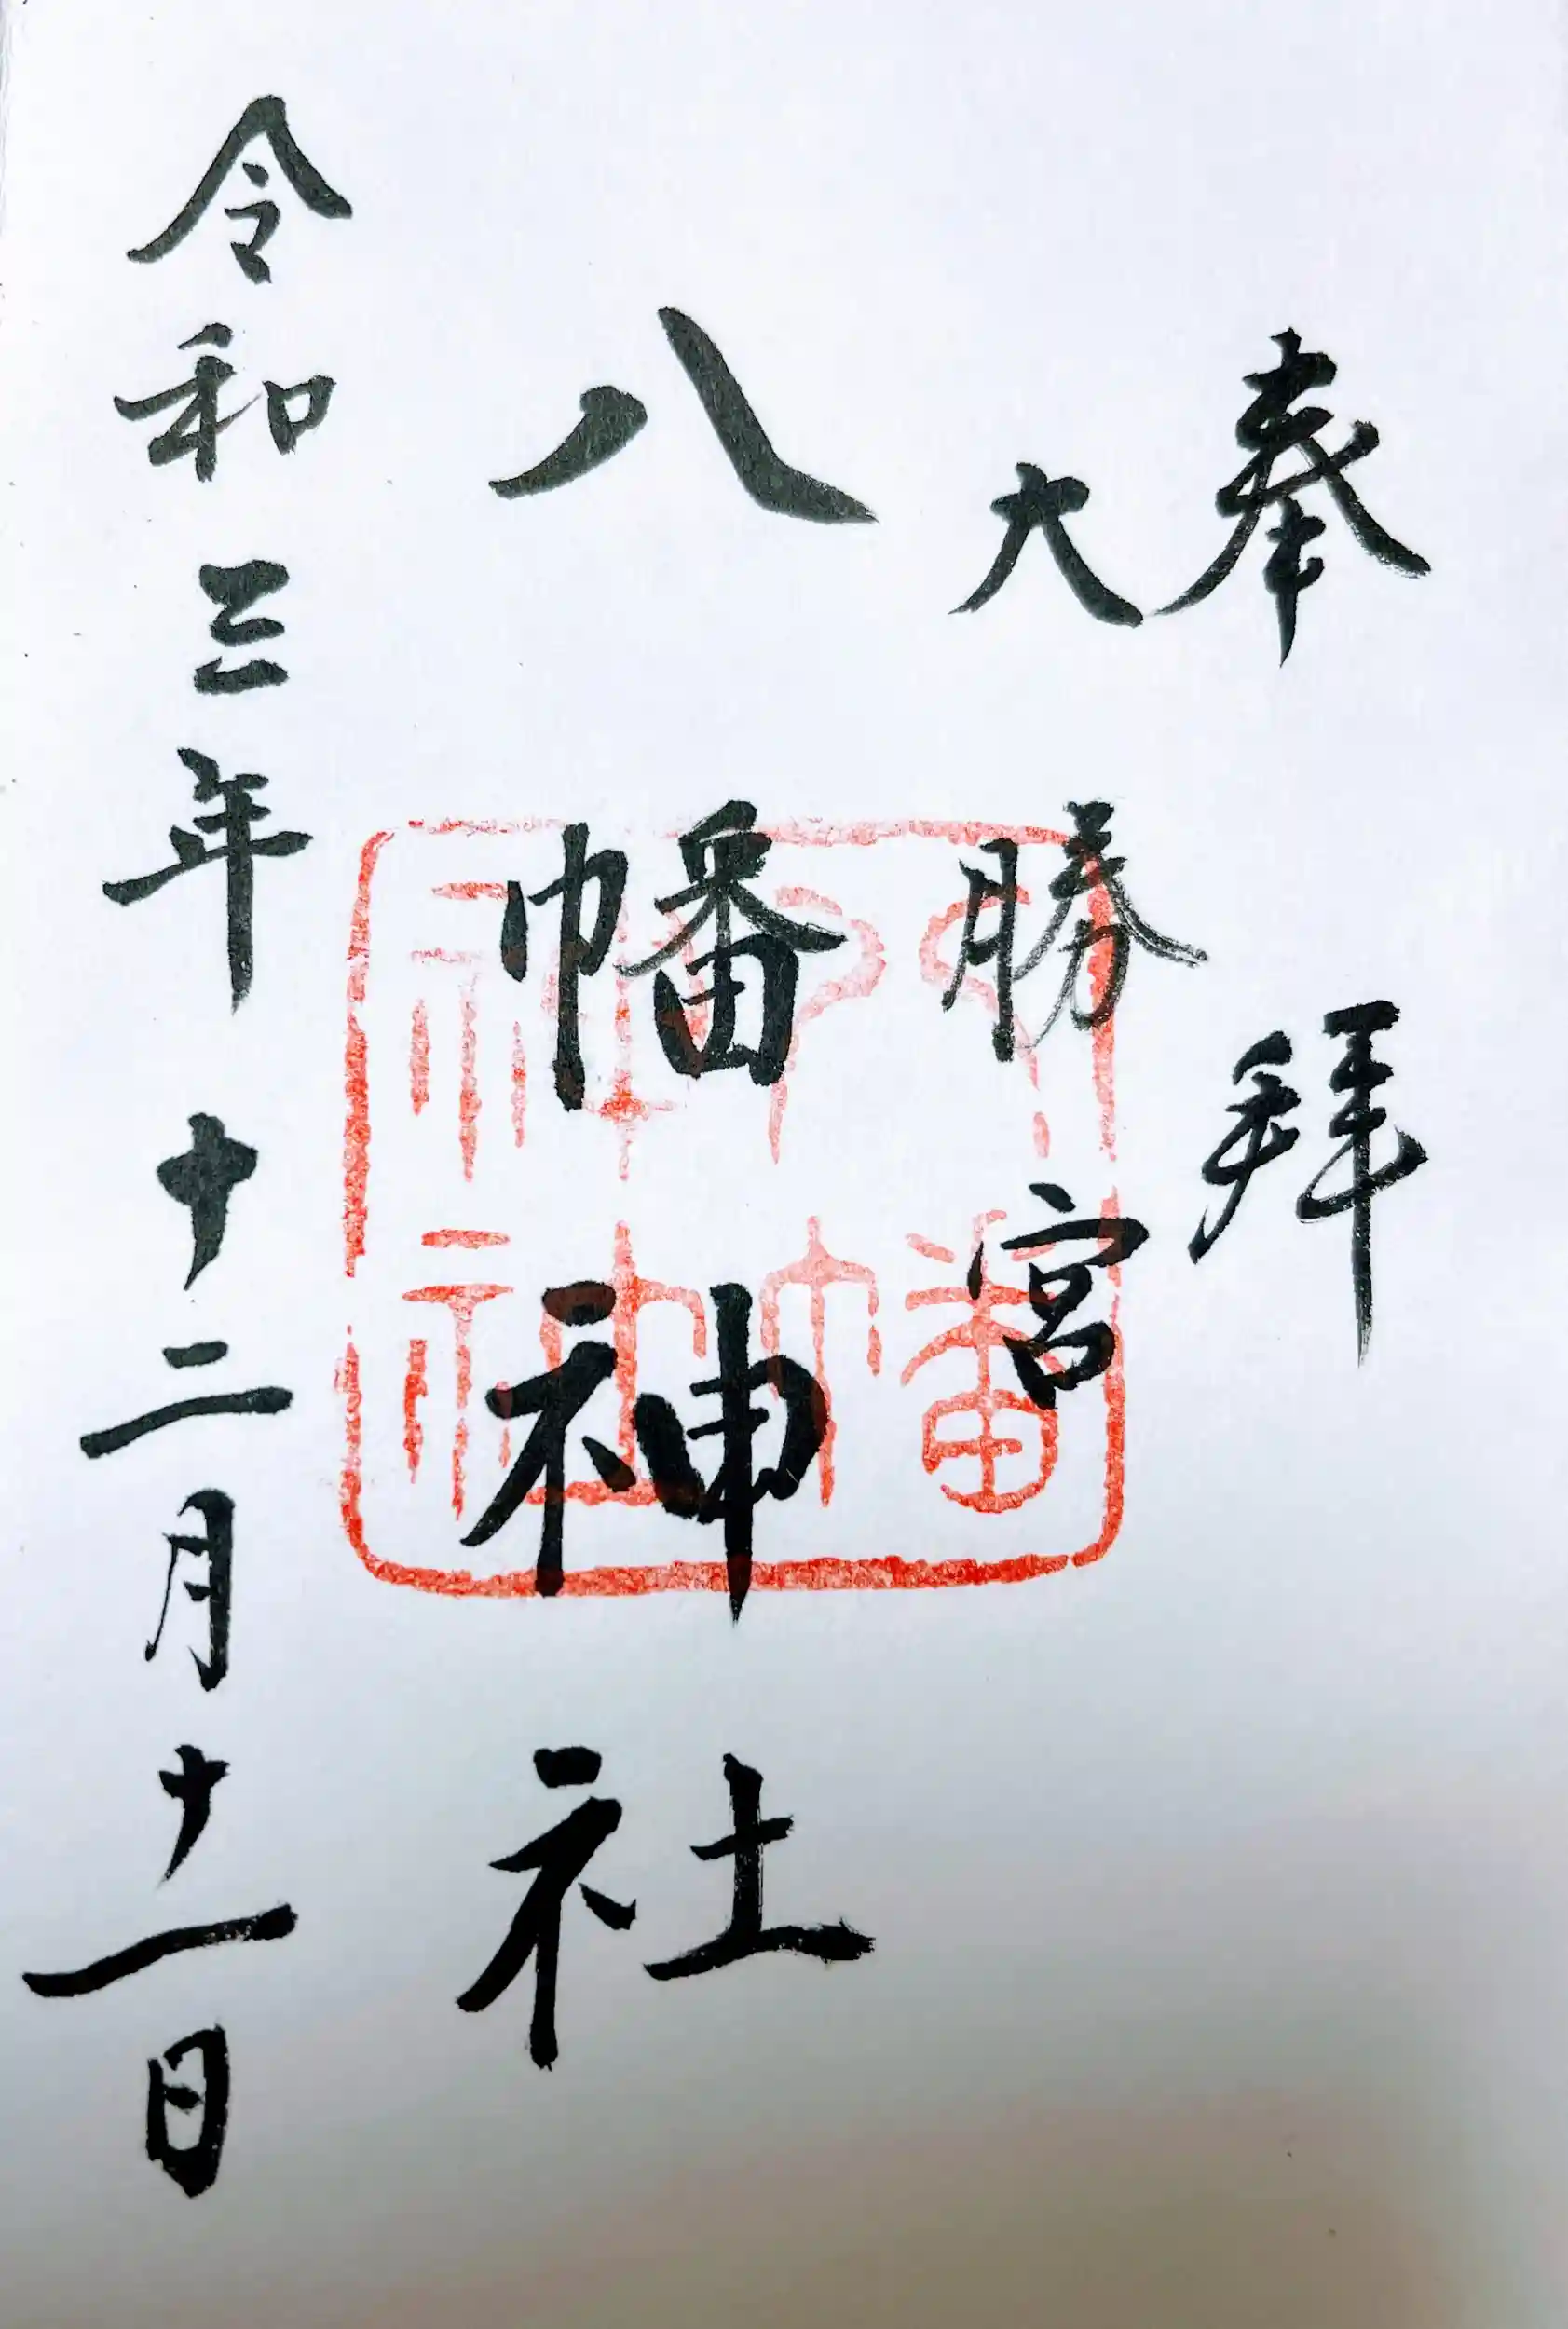 奉拝
大勝宮
八幡神社
令和三年十二月十一日
八幡神社